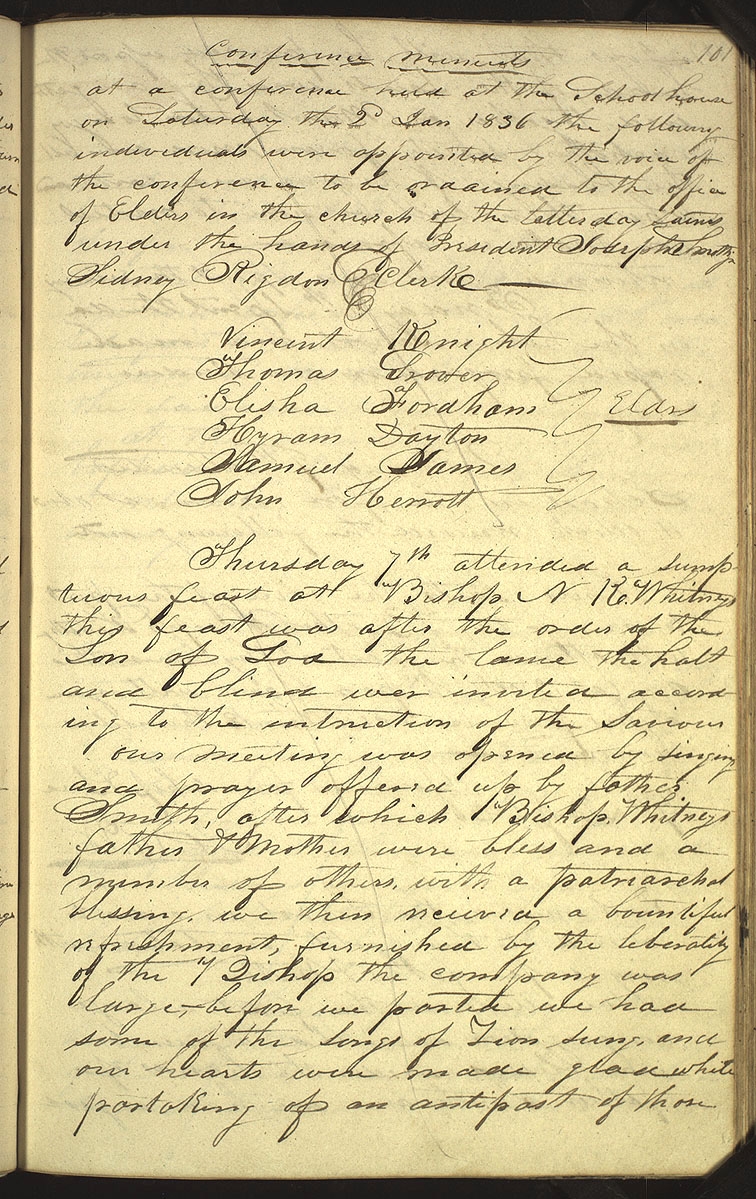 101
Conference Meniets
at a conference held at the School house
on Saturday the 2d Jan 1836 the following
individuals were appointed by the voice of
the conference to be ordained to the office
of Elders in the church of the latterday saints
under the hands of President Joseph Smith jr
Sidney Rigdon Clerk
Vincent Knight
Thomas Grover
Elisha Fordham Elders
Hyram Dayton
Samuel James
John Herrott
Thursday 7th attended a sump
tuous feast at Bishop N K. Whitneys
this feast was after the order of the
Son of God the lame the halt
and blind wer invited accord
ing to the intruction of the Saviour
our meeting was opened by singing
and prayer offered up by father
Smith, after which Bishop. Whitneys
father & Mother were bless and a
number of others. with a patriarchal
blessing. we then received a bountiful
refreshment, furnished by the liberality
of the Bishop the company was
large,– before we parted we had
some of the Songs of Zion sung, and
our hearts were made glad while
partaking of an antipast of those